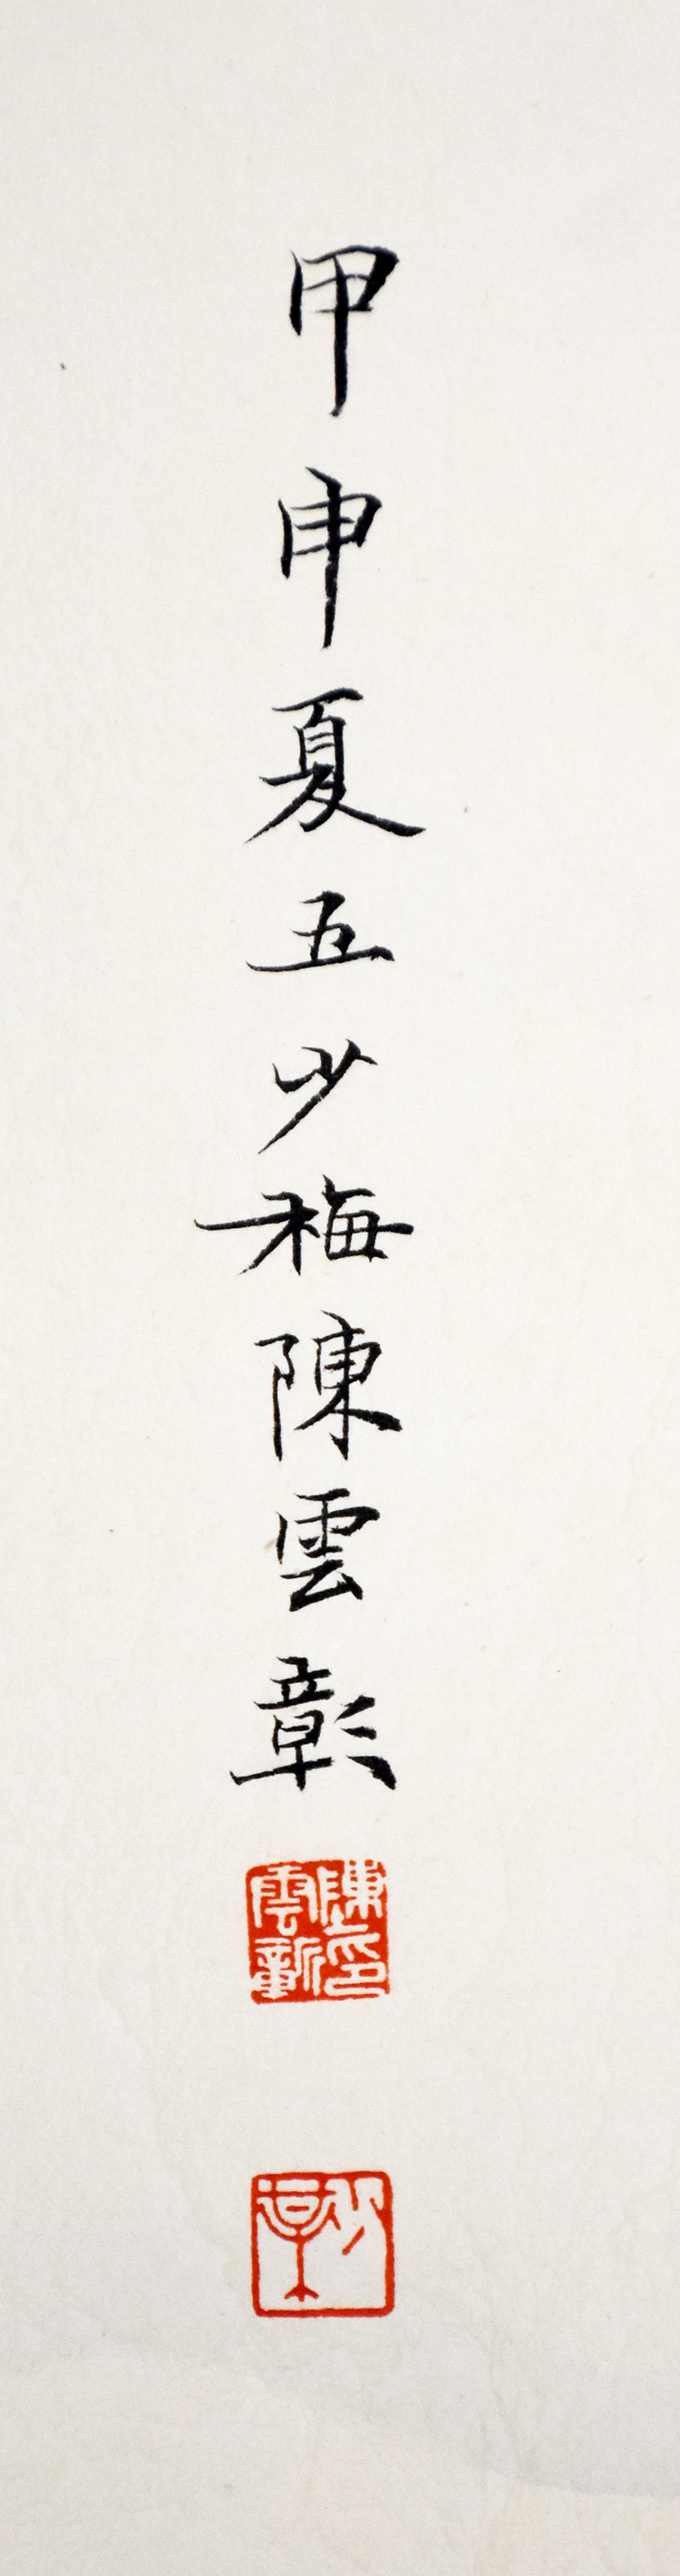 甲申夏五少梅陳雲彰
陳印雲彰